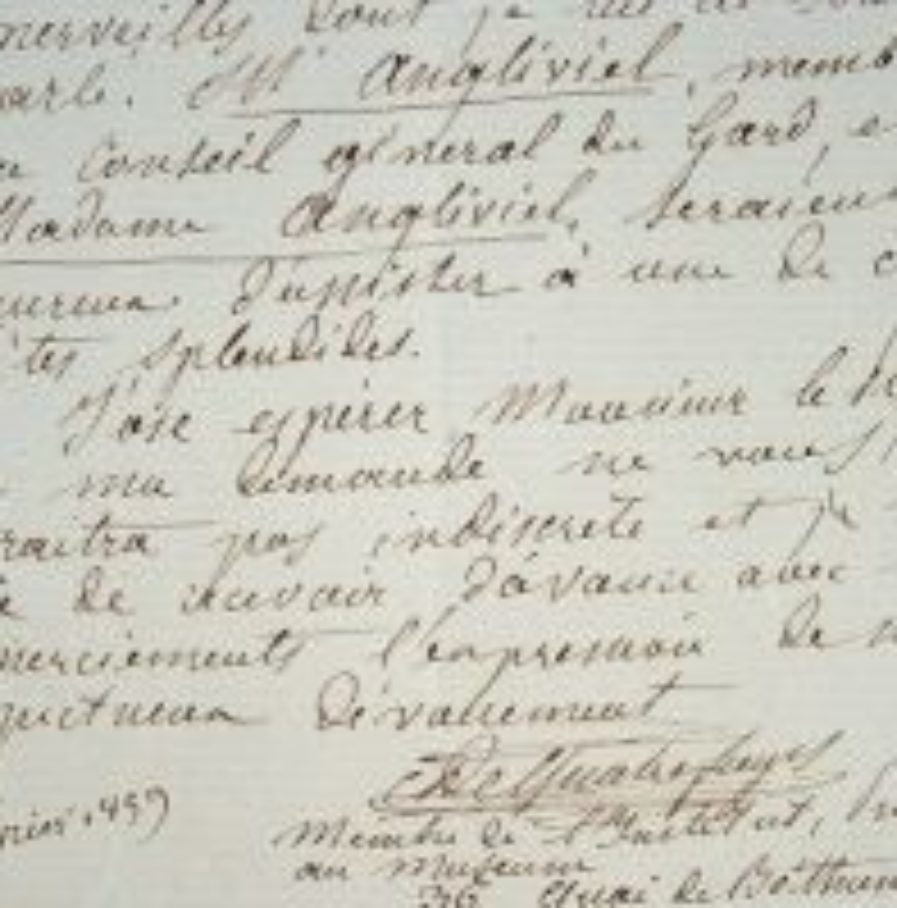 merveilles dont je
parle. Mr Angliviel, memb
Conseil général du Gard, e
Madame Angliviel, seraien
d'assister à une de c
tes splendides.
J'ose espérer Monsieur le
ma demande ne vous
raitra pas indiscrète et je
de recevoir d'avance avec
merciements l'expression de
pectueux dévouement
De Quatrefages
Membre de l'Institut,
au Muséum
36 Quai de Béthune